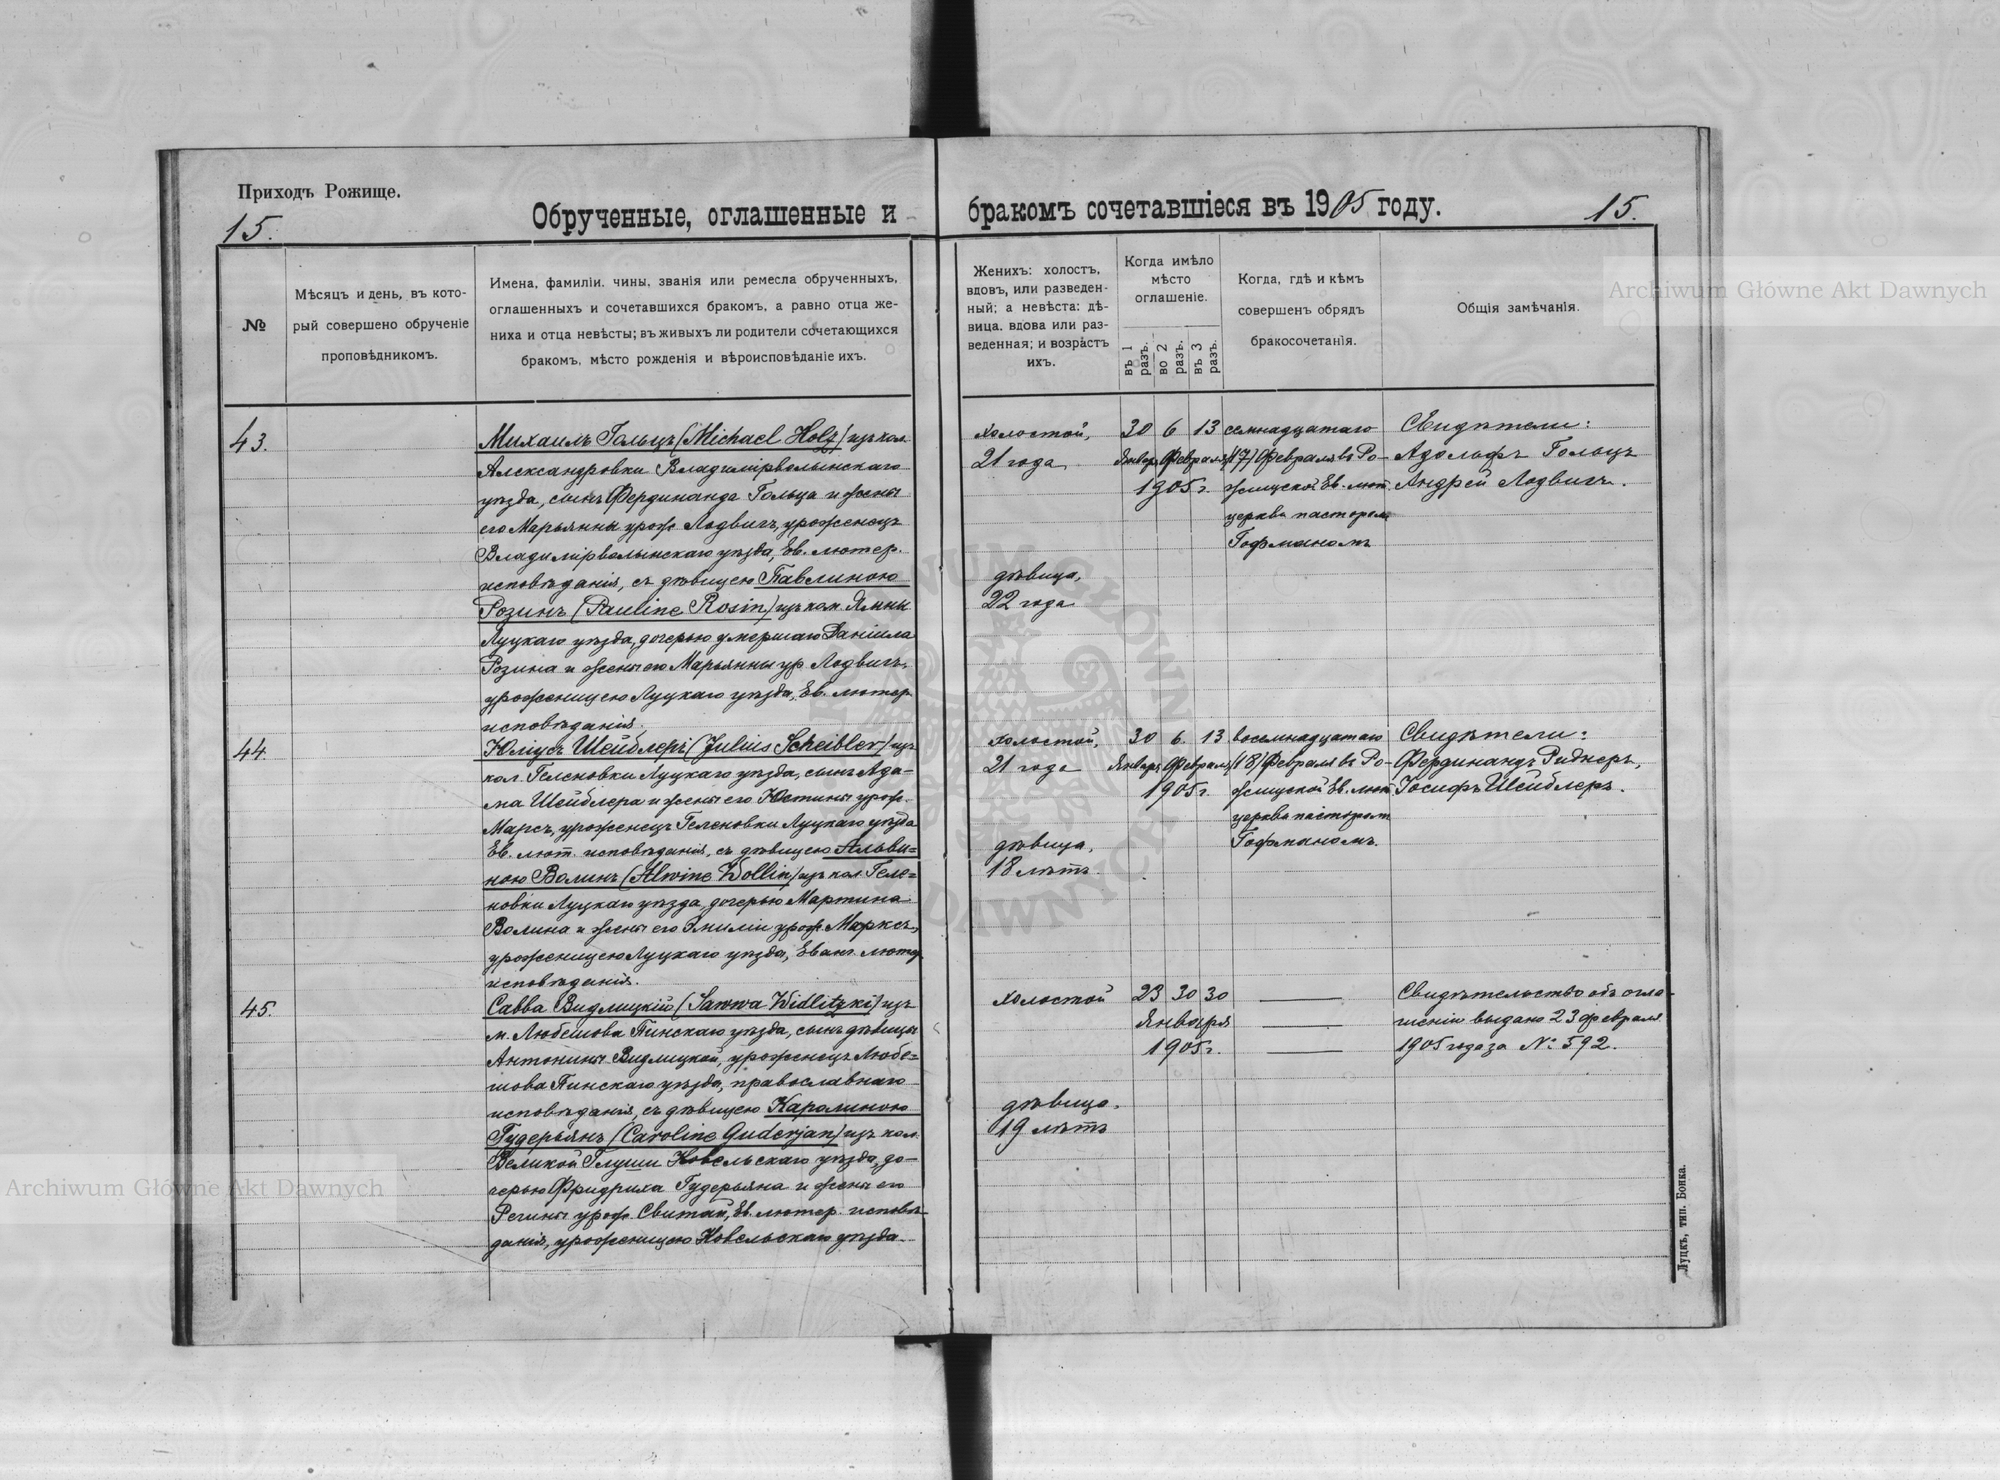 Приходъ Рожище.
15.
Обрученные, оглашенные и
бракомъ сочетавшіеся въ 1905 году.
15.
№
Мѣсяцъ и день, въ кото-
рый совершено обрученіе
проповѣдникомъ.
Имена, фамиліи, чины, званія или ремесла обрученныхъ,
оглашенныхъ и сочетавшихся бракомъ, а равно отца же-
ниха и отца невѣсты; въ живыхъ ли родители сочетающихся
бракомъ, мѣсто рожденія и вѣроисповѣданіе ихъ.
Женихъ: холостъ,
вдовъ, или разведен-
ный; а невѣста: дѣ-
вица, вдова или раз-
веденная; и возрастъ
ихъ.
Когда имѣло
мѣсто
оглашеніе.
въ 1 разъ.
во 2 разъ.
въ 3 разъ.
Когда, гдѣ и кѣмъ
совершенъ обрядъ
бракосочетанія.
Общія замѣчанія.
43.
Михаилъ Гольцъ (Michael Holz) изъ кол.
Александровки Владимірволынскаго
уѣзда, сынъ Фердинанда Гольца и жены
его Марьянны урож. Лодвигъ, уроженецъ
Владимірволынскаго уѣзда, Ев. лютер.
исповѣданія, съ дѣвицею Павлиною
Розинъ (Pauline Rosin) изъ кол. Ямны
Луцкаго уѣзда, дочерью умершаго Даніила
Розина и жены его Марьянны ур. Лодвигъ,
уроженицею Луцкаго уѣзда, Ев. лютер.
исповѣданія.
холостой,
21 года
дѣвица,
22 года
30 6 13
Января Февраля
1905 г.
семнадцатаго
(17) Февраля въ Ро-
жищской Ев. лют.
церкви пасторомъ
Гофманомъ
Свидѣтели:
Адольфъ Гольцъ
Андрей Лодвигъ.
44.
Юліусъ Шейблеръ (Julius Scheibler) изъ
кол. Геленовки Луцкаго уѣзда, сынъ Ада-
ма Шейблера и жены его Юстины урож.
Марсъ, уроженецъ Геленовки Луцкаго уѣзда
Ев. лют. исповѣданія, съ дѣвицею Альви-
ною Волинъ (Alwine Wollin) изъ кол. Геле-
новки Луцкаго уѣзда, дочерью Мартина
Волина и жены его Эмиліи урож. Марксъ,
уроженицею Луцкаго уѣзда, Еванг. лютер.
исповѣданія.
холостой,
21 года
дѣвица,
18 лѣтъ
30 6. 13
Января Февраля
1905 г.
восемнадцатаго
(18) Февраля въ Ро-
жищской Ев. лют.
церкви пасторомъ
Гофманомъ.
Свидѣтели:
Фердинандъ Риднеръ,
Іосифъ Шейблеръ.
45.
Савва Видлицкій (Sawwa Widlitzki) изъ
м. Любешова Пинскаго уѣзда, сынъ дѣвицы
Антонины Видлицкой, уроженецъ Любе-
шова Пинскаго уѣзда, православнаго
исповѣданія, съ дѣвицею Каролиною
Гудерьянъ (Caroline Guderjan) изъ кол.
Великой Глуши Ковельскаго уѣзда, до-
черью Фридриха Гудерьяна и жены его
Регины урож. Свитай, Ев. лютер. исповѣ-
данія, уроженицею Ковельскаго уѣзда.
холостой
дѣвица.
19 лѣтъ
23 30 30
Января
1905 г.
Свидѣтельство объ огла-
шеніи выдано 23 февраля
1905 года за №: 592.
Луцкъ, тип. Бонка.
Archiwum Główne Akt Dawnych
Archiwum Główne Akt Dawnych